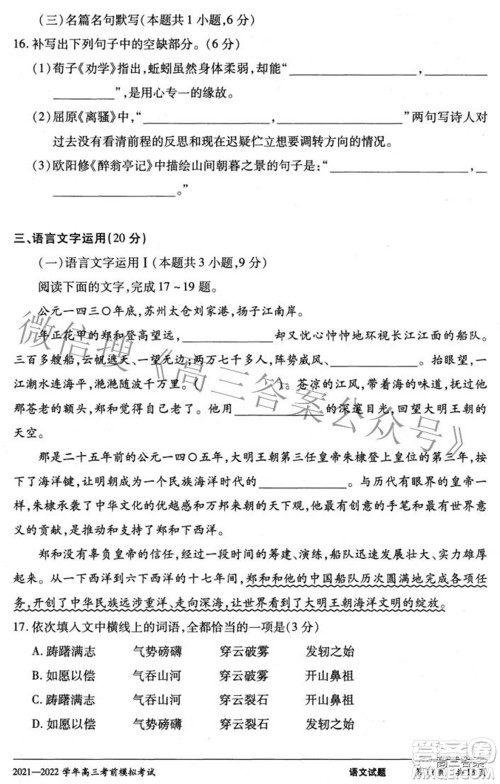 (三)名篇名句默写(本题共1小题,6分)
16.补写出下列句子中的空缺部分。(6分)
(1)荀子《劝学》指出,蚯蚓虽然身体柔弱,却能“____________,
____________”,是用心专一的缘故。
(2)屈原《离骚》中,“____________,____________”两句写诗人对
过去没有看清前程的反思和现在迟疑伫立想要调转方向的情况。
(3)欧阳修《醉翁亭记》中描绘山间朝暮之景的句子是:“____________,
____________。”
三、语言文字运用(20分)
(一)语言文字运用Ⅰ(本题共3小题,9分)
阅读下面的文字,完成17~19题。
公元一四三〇年底,苏州太仓刘家港,扬子江南岸。
年正花甲的郑和登高望远,____________却又忧心忡忡地环视长江江面的船队。
三百多艘船,云帆遮天、一望无边;两万七千多人,阵势威风、____________。抬眼望,一
江潮水连海平,滟滟随波千万里,(  )。苍凉的江风,带着海的味道,抚过他
那苍老的额头,郑和用他那____________的深邃目光,仰望大明王朝的
天空。
那是二十五年前的公元一四〇五年,大明王朝第三任皇帝朱棣登上皇位的第三年,按
下了海洋键,让明朝成为一个民族海洋文明的____________。与历代有雄心的皇帝一
样,朱棣承袭了中华文化的优越感和万邦来朝的大国情怀,他最有创意的手笔和最有世界意
义的贡献,是开创并支持郑和下西洋。
郑和没有辜负皇帝的信任,经过一段时间的筹建、演练,船队迅速发展壮大,气势威武雄
壮。从一下西洋到六下西洋的十七年间,郑和和他的中国船队历次满载瓷器、丝绸和茶叶出
访,开创了中华民族远涉重洋、走向世界的壮举,让世界看到了大明王朝海洋文明的绽放。
17.依次填入文中横线上的词语,全都恰当的一项是(3分)
A.踌躇满志 气势磅礴 穿云破雾 发轫之始
B.如愿以偿 气吞山河 穿云破雾 开山鼻祖
C.踌躇满志 气吞山河 穿云裂石 发轫之始
D.如愿以偿 气势磅礴 穿云裂石 开山鼻祖
2021—2022学年高三考前模拟考试 语文试题
微信搜《高三答案公众号》
高三答案